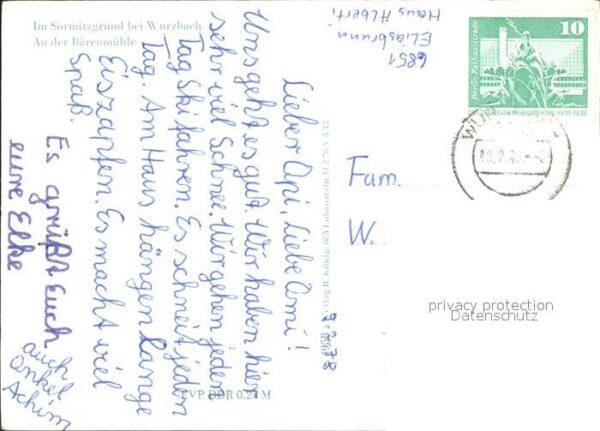 Im Sormitzgrund bei Wurzbach
An der Bärenmühle
6851
Eliasbrunn
Haus Albert
10
Berlin, Rathausstraße
DEUTSCHE DEMOKRATISCHE REPUBLIK
9.2.78
Lieber Opi, liebe Omi!
Uns geht es gut. Wir haben hier
sehr viel Schnee. Wir gehen jeden
Tag Ski fahren. Es schneit jeden
Tag. Am Haus hängen lange
Eiszapfen. Es macht viel
Spaß.
Es grüßt Euch
eure Elke
auch
Onkel
Achim
Fam.
W.
Verlag R. König, 685 Lobenstein
EVP DDR 0,20 M
privacy protection
Datenschutz